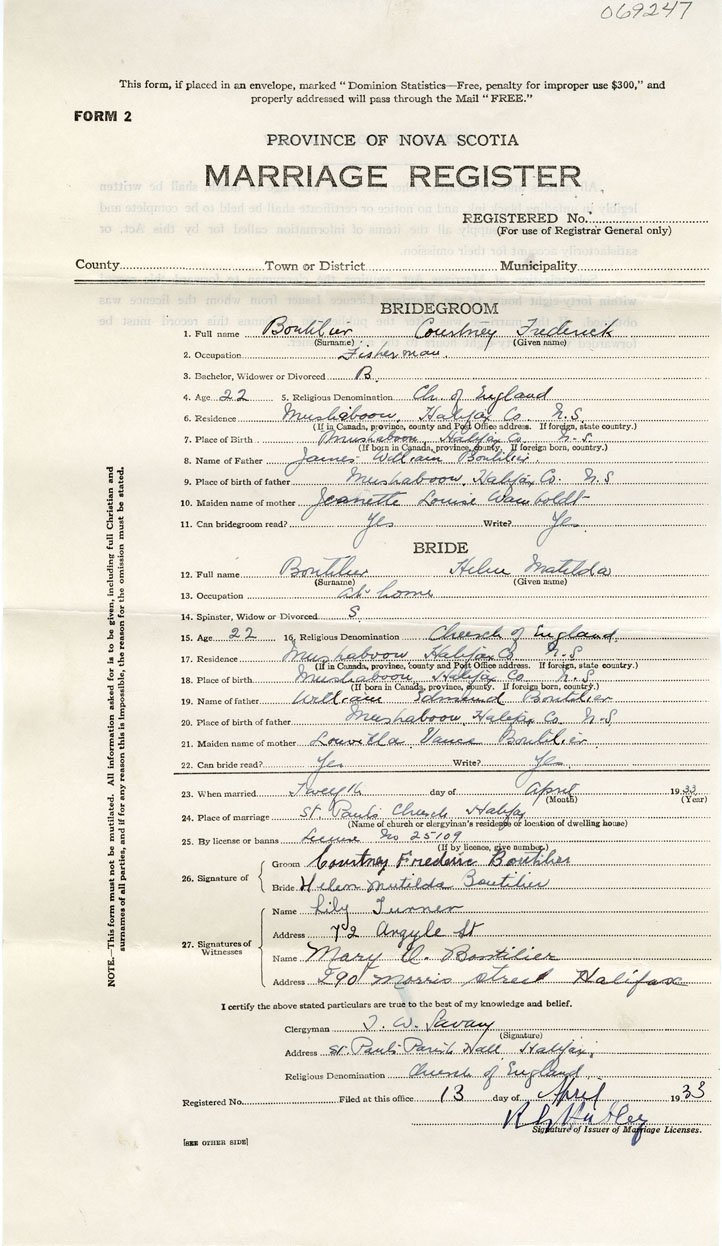 069247
This form, if placed in an envelope, marked "Dominion Statistics—Free, penalty for improper use $300," and
properly addressed will pass through the Mail "FREE."
FORM 2
PROVINCE OF NOVA SCOTIA
MARRIAGE REGISTER
REGISTERED No.
(For use of Registrar General only)
County Town or District Municipality
BRIDEGROOM
1. Full name Boutilier Courtney Frederick
(Surname) (Given name)
2. Occupation Fisherman.
3. Bachelor, Widower or Divorced B.
4. Age 22 5. Religious Denomination Ch. of England
6. Residence Mushaboom, Halifax Co. N.S.
(If in Canada, province, county and Post Office address. If foreign, state country.)
7. Place of Birth Mushaboom, Halifax Co. N.S.
(If born in Canada, province, county. If foreign born, country.)
8. Name of Father James William Boutilier.
9. Place of birth of father Mushaboom, Halifax Co. N.S
10. Maiden name of mother Jeanette Louise Wamboldt
11. Can bridegroom read? Yes Write? Yes
BRIDE
12. Full name Boutilier Helen Matilda
(Surname) (Given name)
13. Occupation at home
14. Spinster, Widow or Divorced S.
15. Age 22 16. Religious Denomination Church of England.
17. Residence Mushaboom Halifax Co N.S
(If in Canada, province, county and Post Office address. If foreign, state country.)
18. Place of birth Mushaboom, Halifax Co N.S
(If born in Canada, province, county. If foreign born, country.)
19. Name of father William Edmund Boutilier
20. Place of birth of father Mushaboom, Halifax Co. N.S
21. Maiden name of mother Vance Boutilier
22. Can bride read? Yes Write? Yes
23. When married Twelfth day of April 1933
(Month) (Year)
24. Place of marriage St. Paul's Church Halifax
(Name of church or clergyman's residence or location of dwelling house)
25. By license or banns License No 25109
(If by licence, give number.)
26. Signature of Groom Courtney Frederic Boutilier
Bride Helen Matilda Boutilier
27. Signatures of Witnesses
Name Lily Turner
Address 72 Argyle St
Name Mary O. Boutilier
Address 290 Morris street Halifax
I certify the above stated particulars are true to the best of my knowledge and belief.
Clergyman T. W. Savary
(Signature)
Address St. Paul's Parish Hall Halifax.
Religious Denomination Church of England
Registered No. Filed at this office 13 day of April 1933
Signature of Issuer of Marriage Licenses.
[SEE OTHER SIDE]
NOTE.—This form must not be mutilated. All information asked for is to be given, including full Christian and
surnames of all parties, and if for any reason this is impossible, the reason for the omission must be stated.